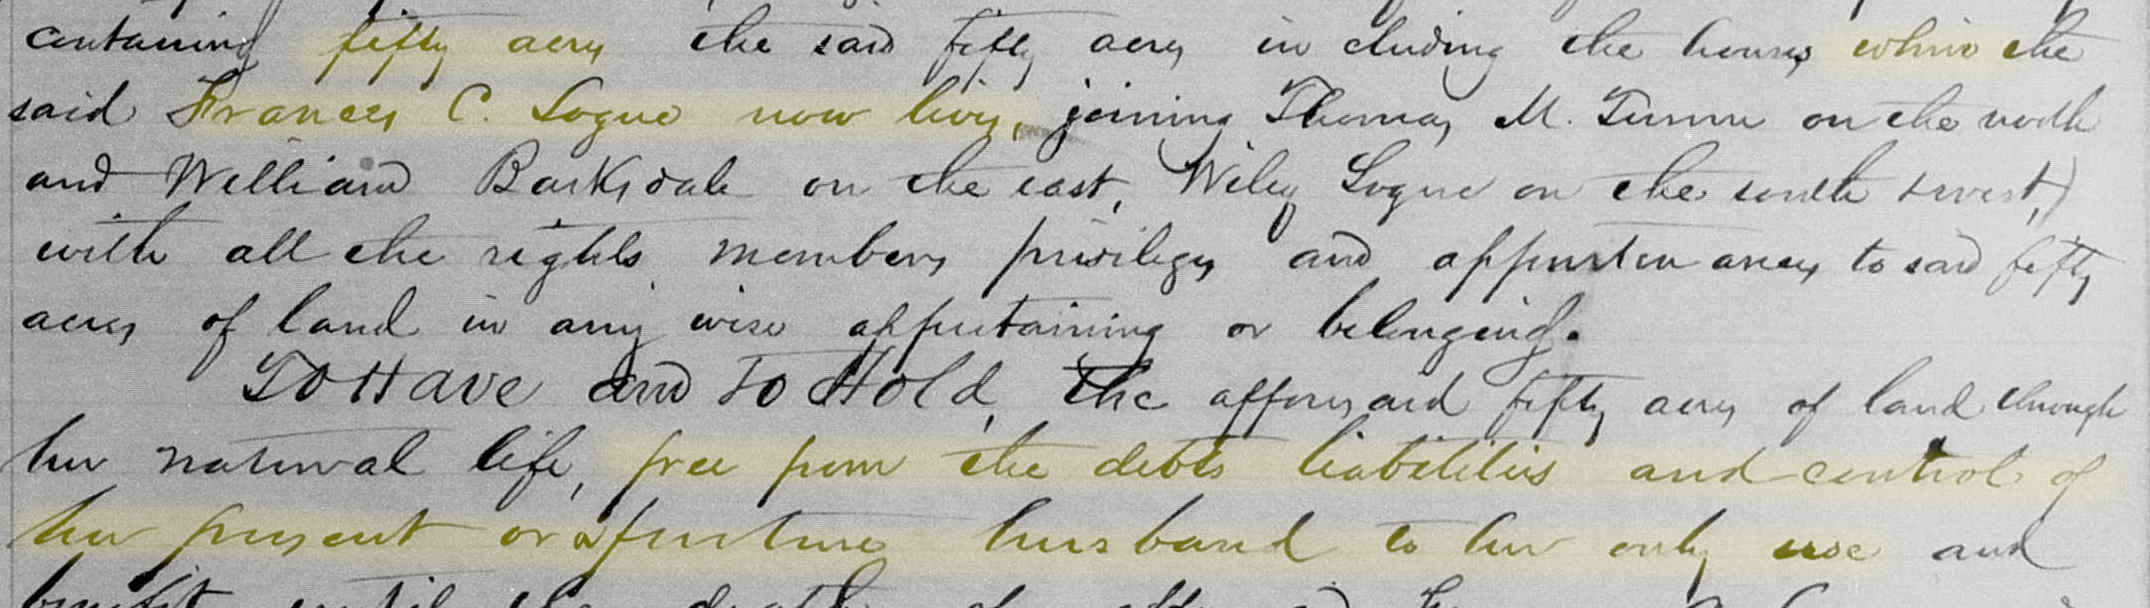 containing fifty acres the said fifty acres in cluding the houses where the
said Frances C. Logue now lives, joining Thomas M. Turner on the north
and William Barksdale on the east, Wiley Logue on the south & west,)
with all the rights members privileges and appurten ances to said fifty
acres of land in any wise appertaining or belonging.
To Have and To Hold, the afforesaid fifty acres of land through
her natural life, free from the debts liabilities and control of
her present or a future husband to her only use and
benefit until the death of